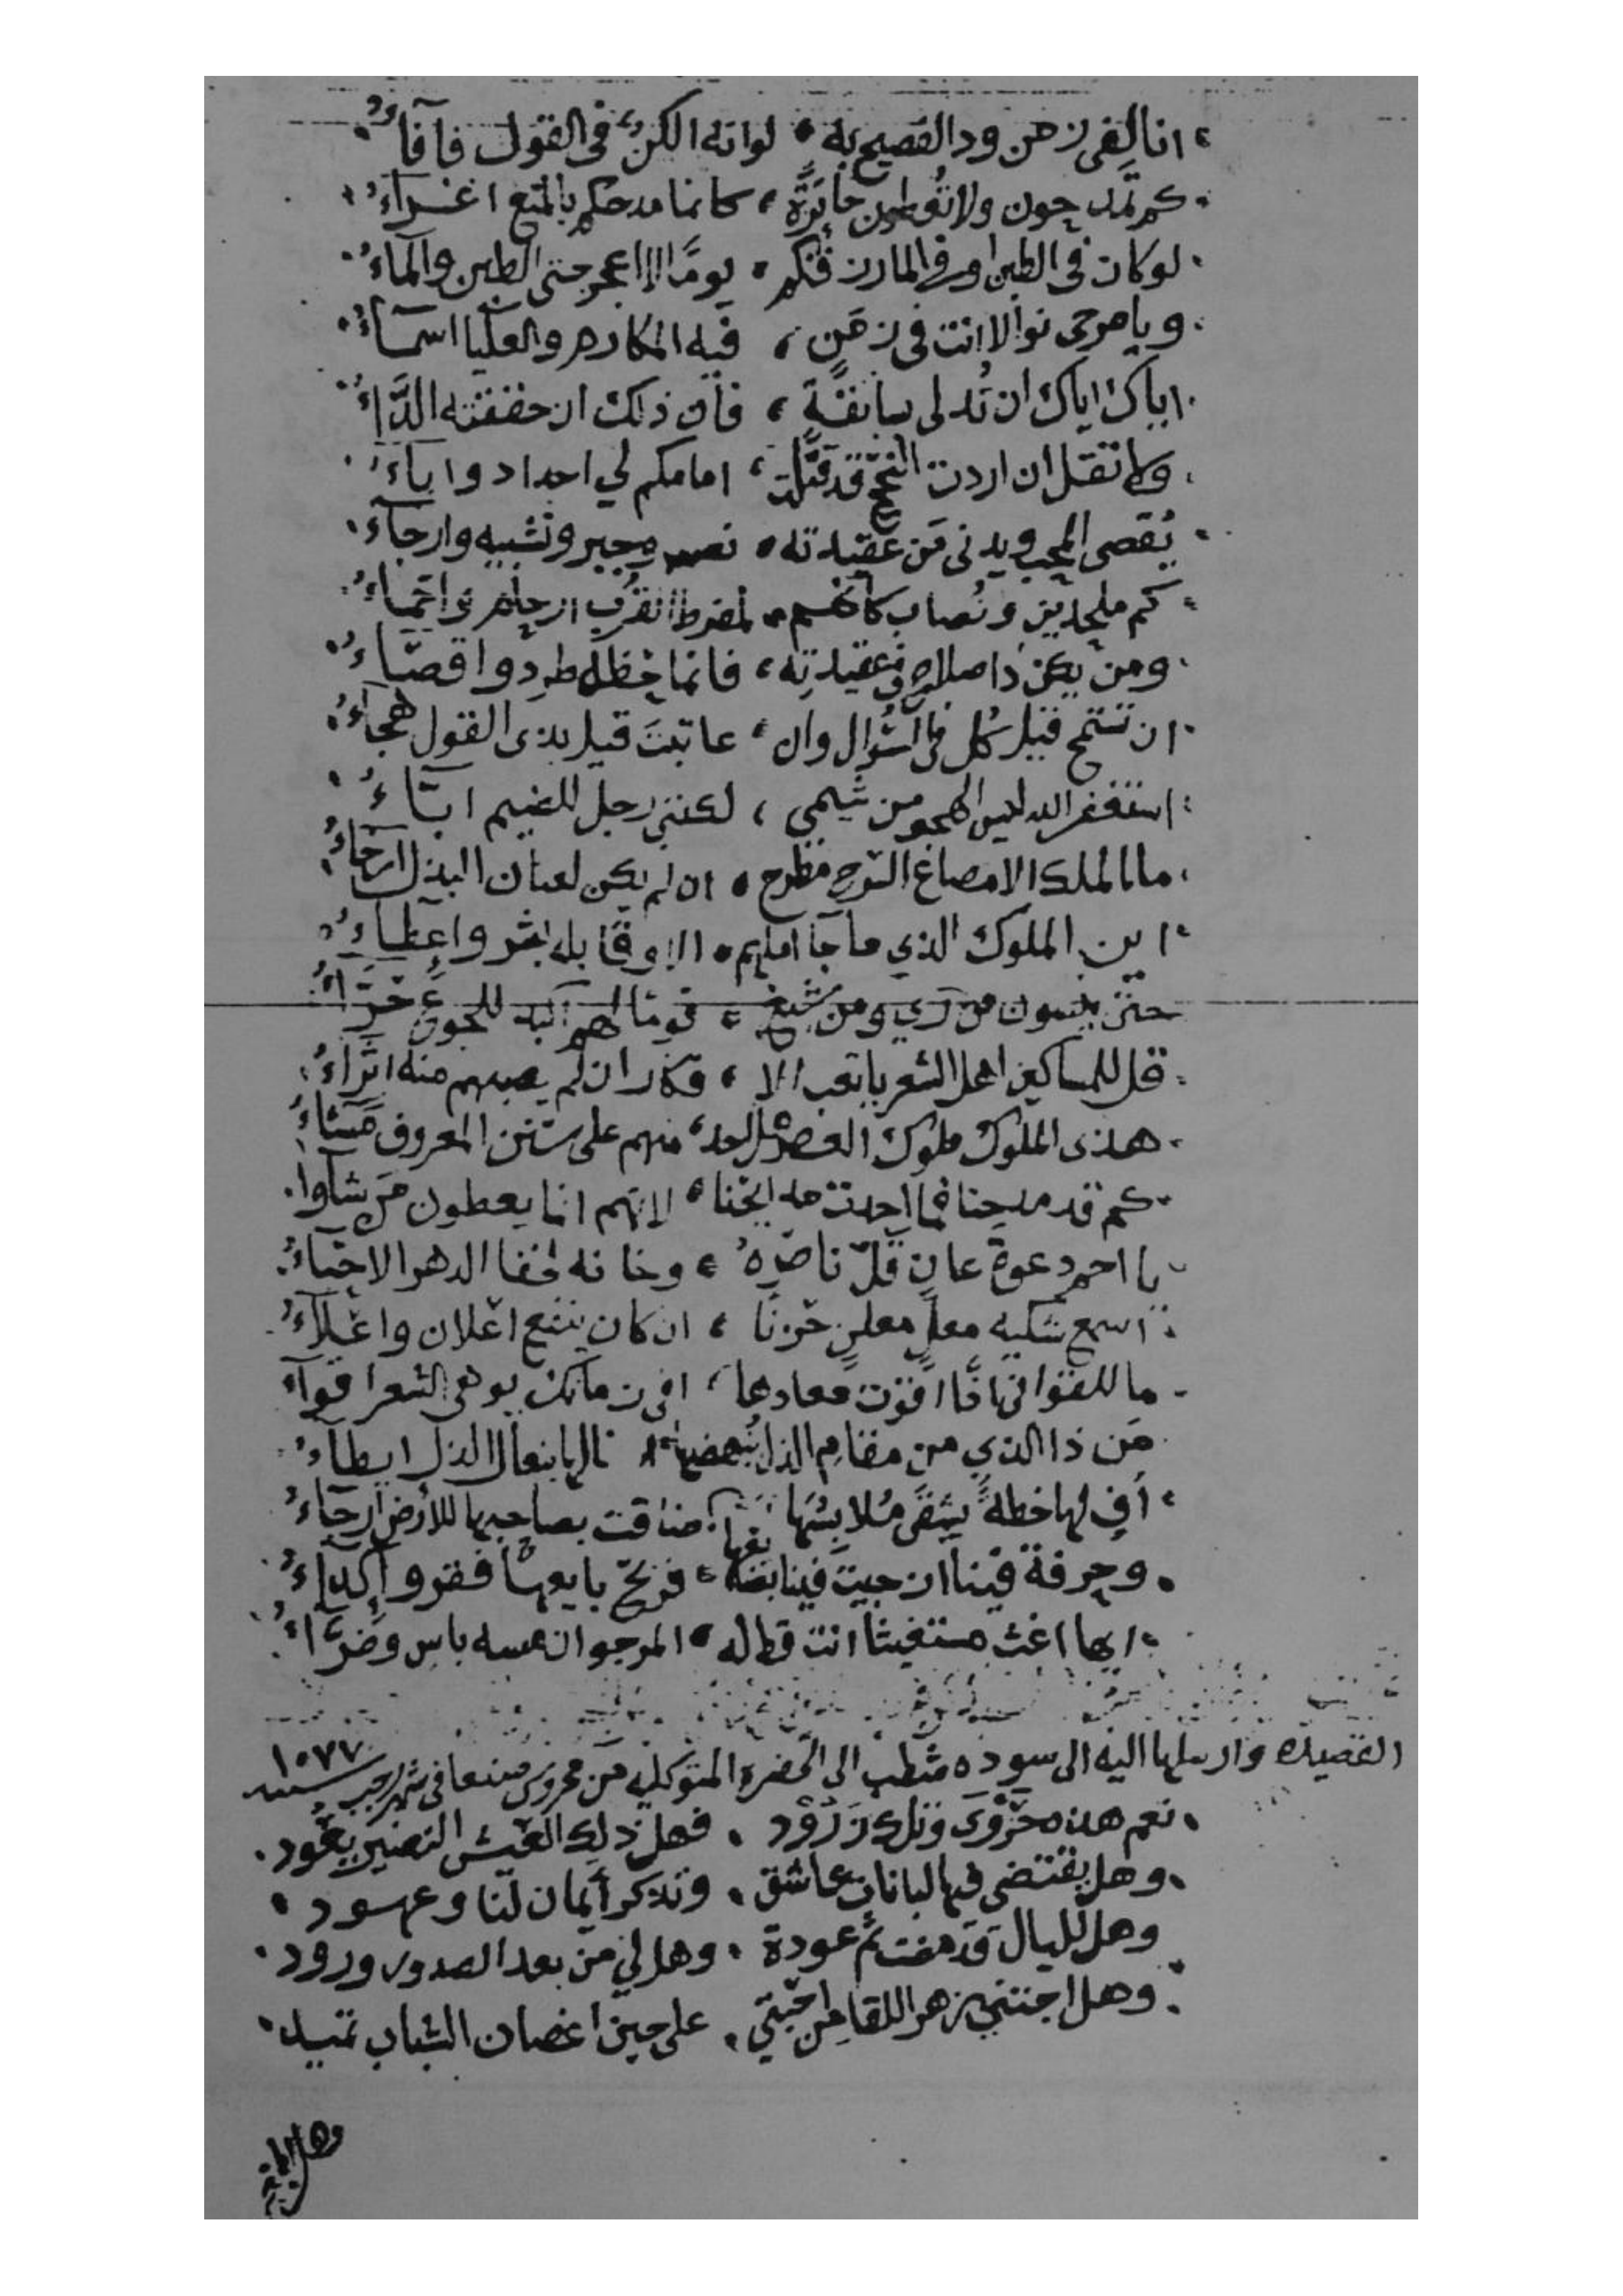 انا لفى زمن ود الفصيح به ، لو انه الكنٌ فى القول فأفاءُ
كم تمدحون ولا تُعطون جائزةً ، كانما مدحكم بالمنع اغراءُ
لو كان فى الطين او فى المارز قكم ، يومًا لا اعجزحتى الطين والماءُ
ويا مرجى نوالا انت فى زمَنٍ ، فيه المكارم والعليا اسماءُ
اياك اياك ان تُدلى بسابقةٍ ، فان ذلك ان حققته الدَّاءُ
ولا تقل ان اردت النجح قد قتلت ، امامكم لي اجداد واباءُ
يُقصى المحب ويدنى مَن عقيدته ، نصب وجبر وتشبيه وارجاءُ
كم ملحدين ونُصاب كأنهم ، لمفرط القرب ارحام واحماءُ
ومن يكن ذا صلاح فى عقيدته ، فانما حظه طرد واقصاءُ
ان تستمح قيل كل فى السُوال وان ، عاتبت قيل بذى القول هجاءُ
استغفر الله ليس الهجو من شيمي ، لكنني رجل للضيم ابّاءُ
ما المُلك الا مصاغ السرح مطرح ، ان لم يكن لعنان البذل ارخاءُ
اين الملوك الذي ما جا املهم ، الا وقابله بشر واعطاءُ
حتى يبيتون من رَي ومن شبع ، قومًا لهم البه للجوع حزّاءُ
قل للمساكين اهل الشعر يا تعب الا ، فكار ان لم يصبهم منه اثراءُ
هذى الملوك ملوك العصر هل احد ، منهم على سَنن المعروف مشاءُ
كم قد مدحنا فما اجدت مدايحنا ، لانهم انما يعطون مَن شاوا
يا احمد دعوة عانٍ قلّ ناصره ، وخانه لجفا الدهر الاحباءُ
اسمع شكيه معلٍ معلنٍ حَزنًا ، ان كان ينفع اعلان واعلاءُ
ما للقوافى اذا اقوت معادها ، افى زمانك يوهى الشعر اقواءُ
مَن ذا الذي من مقام الذل يُنهضها ، نالها بنعال الذل ابطاءُ
أفٍ لها خطةً يشقى مُلابسُها ، ضاقت بصاحبها للارض ارجاءُ
وحرفة فينا ان جيتَ فينا بضه ، فربح بايعها فقر واكداءُ
ايها اغث مستغيثا انت قط له ، المرجو ان مسه باس وضرّاءُ
القصيده وارسلها اليه الى سوده شظب الى الحضره المتوكليه من محروس صنعا فى شهر رجب سنه ١٠٧٧
نعم هذه حُزوى وتلك زَرُود ، فهل ذلك العيش النضير يعُود
وهل يقتضى فيها لبانات عاشق ، وتذكر أيمان لنا وعهود
وهل لليال قد مضت ثَم عودة ، وهل لي من بعد الصدور ورود
وهل اجتنى زهر اللقا من احبتي ، على حين اغصان الشباب تميد